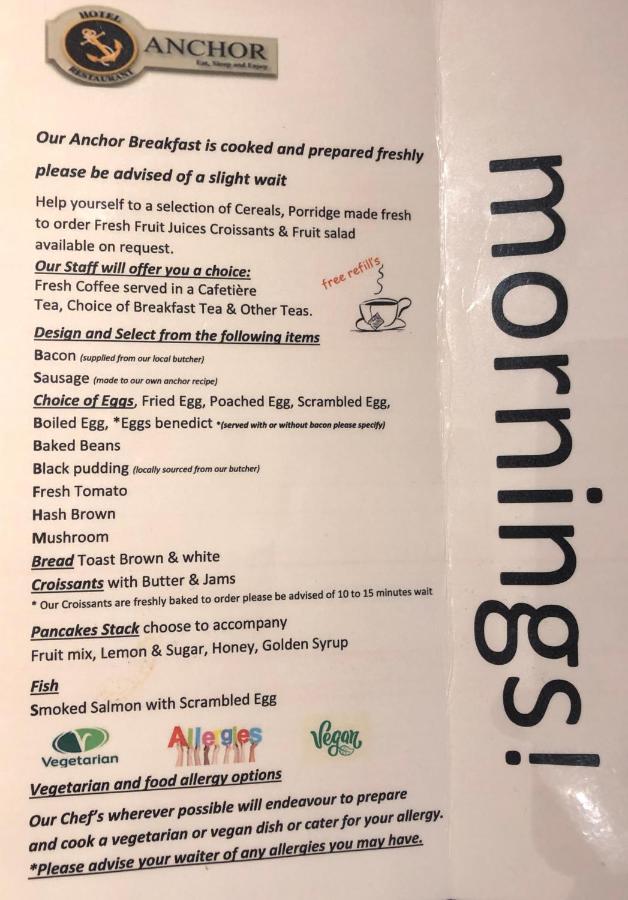 HOTEL
ANCHOR
Eat, Sleep and Enjoy
RESTAURANT
Our Anchor Breakfast is cooked and prepared freshly
please be advised of a slight wait
Help yourself to a selection of Cereals, Porridge made fresh
to order Fresh Fruit Juices Croissants & Fruit salad
available on request.
Our Staff will offer you a choice:
Fresh Coffee served in a Cafetière
Tea, Choice of Breakfast Tea & Other Teas.
free refill's
Design and Select from the following items
Bacon (supplied from our local butcher)
Sausage (made to our own anchor recipe)
Choice of Eggs, Fried Egg, Poached Egg, Scrambled Egg,
Boiled Egg, *Eggs benedict *(served with or without bacon please specify)
Baked Beans
Black pudding (locally sourced from our butcher)
Fresh Tomato
Hash Brown
Mushroom
Bread Toast Brown & white
Croissants with Butter & Jams
* Our Croissants are freshly baked to order please be advised of 10 to 15 minutes wait
Pancakes Stack choose to accompany
Fruit mix, Lemon & Sugar, Honey, Golden Syrup
Fish
Smoked Salmon with Scrambled Egg
Vegetarian
Allergies
Vegan
Vegetarian and food allergy options
Our Chef's wherever possible will endeavour to prepare
and cook a vegetarian or vegan dish or cater for your allergy.
*Please advise your waiter of any allergies you may have.
mornings!